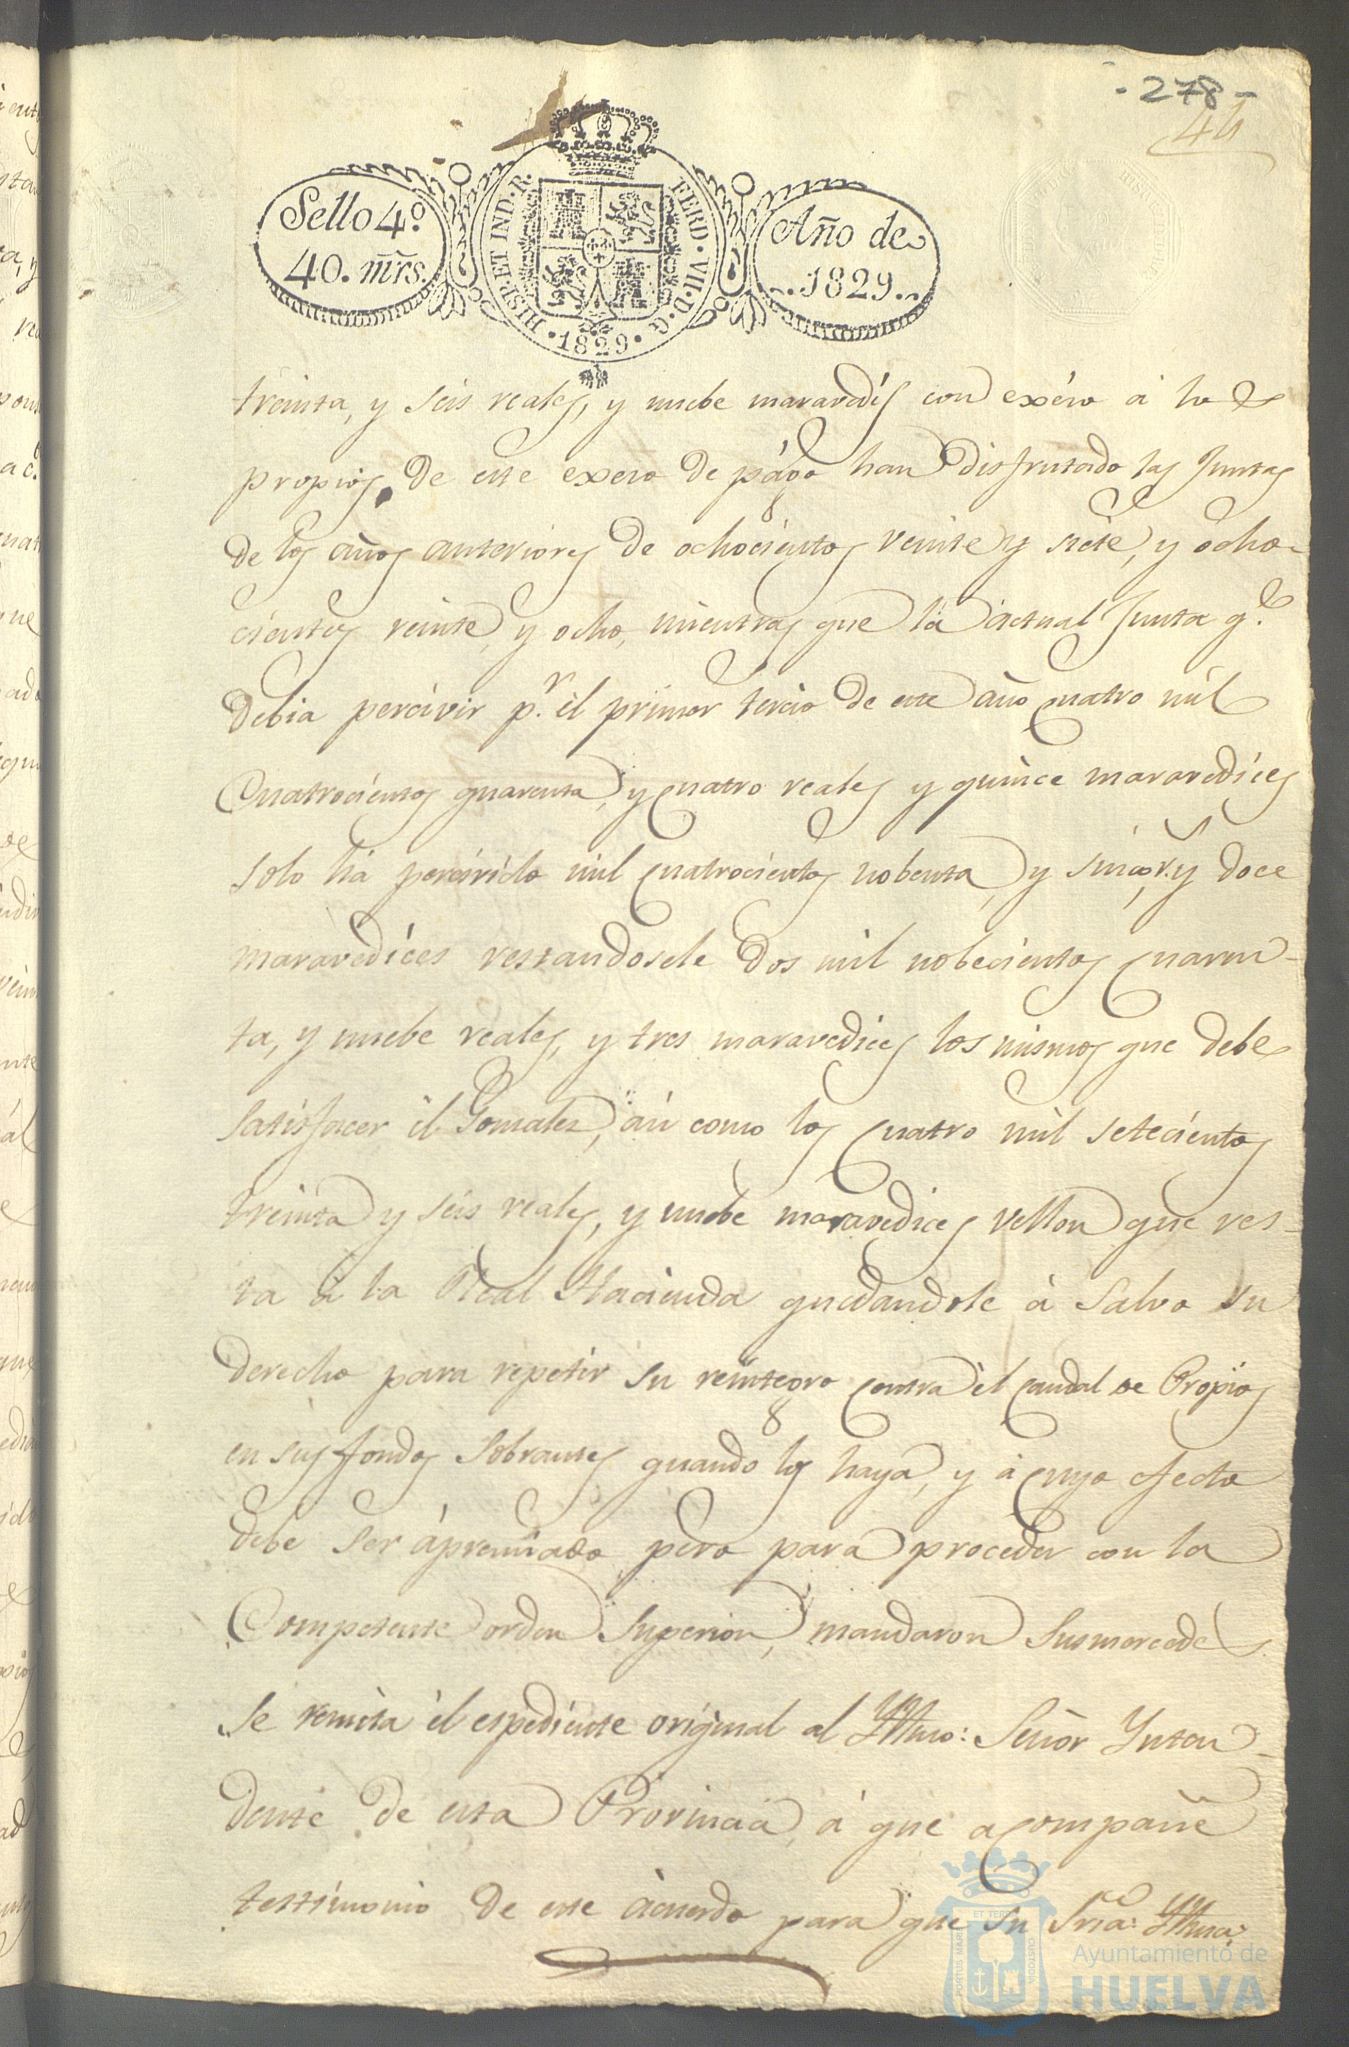 -278-
44
Sello 4º
40. mrs.
HISP. ET IND. R. FERD. VII. D. G. 1829
Año de
1829.
treinta, y seis reales, y nuebe maravedís con exéso á lo de
propios, de este exeso de págo han disfrutado las Juntas
de los años anteriores de ochocientos veinte y siete, y ocho-
cientos veinte, y ocho, mientras que la actual Junta q.e
debia percivir p.r el primer tercio de este año quatro mil
Cuatrocientos quarenta, y cuatro reales y quince maravedices
solo há percivido mil cuatrocientos nobenta, y sinco r.s y doce
maravedices restandosele dos mil nobecientos cuaren-
ta, y nuebe reales, y tres maravedices los mismos que debe
satisfacer él Gonzales, así como los cuatro mil setecientos
treinta y seis reales, y nuebe maravedices vellon que res-
ta á la Real Hacienda quedandole á salvo su
derecho para repetir su reintegro contra él caudal de Propios
en sus fondos sobrantes quando los haya, y á cuyo efecto
debe ser ápremiado pero para proceder con la
Competente orden Superior, mandaron Susmercedes
se remita él espediente original al Yllmo: Señor Ynten-
dente de esta Provincia, á que acompañe
testimonio de este ácuerdo para que su Sría: Yllma:
PORTUS MARIS ET TERRAE CUSTODIA
Ayuntamiento de
HUELVA